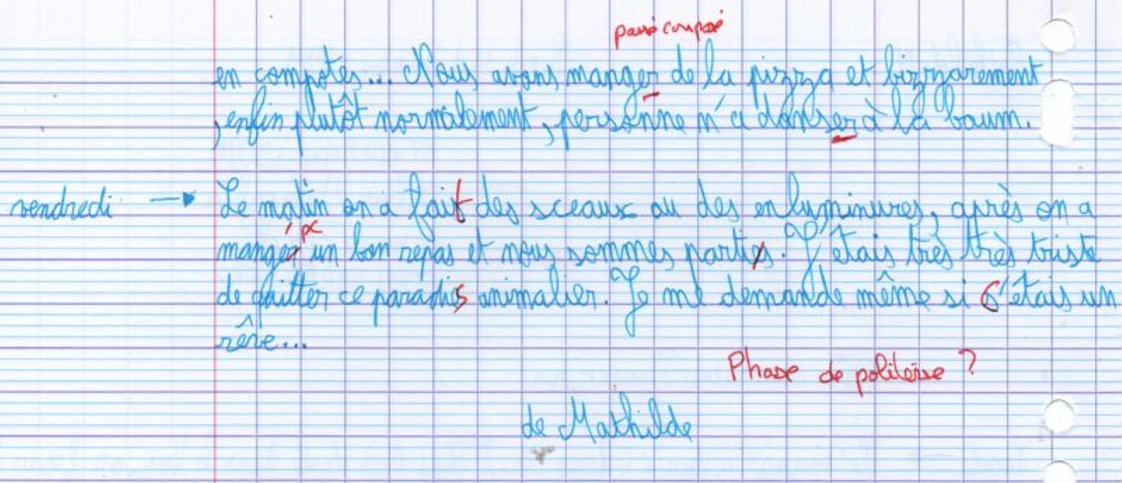 passé composé
en compotes... Nous avons manger de la pizza et bizzarement
, enfin plutôt normalement, personne n'a danser à la baum.
vendredi → Le matin on a fait des sceaux ou des enluminures, après on a
pc
manger un bon repas et nous sommes partis. J'étais très très triste
de quitter ce paradis animalier. Je me demande même si c'étais un
rêve...
Phase de politesse ?
de Mathilde